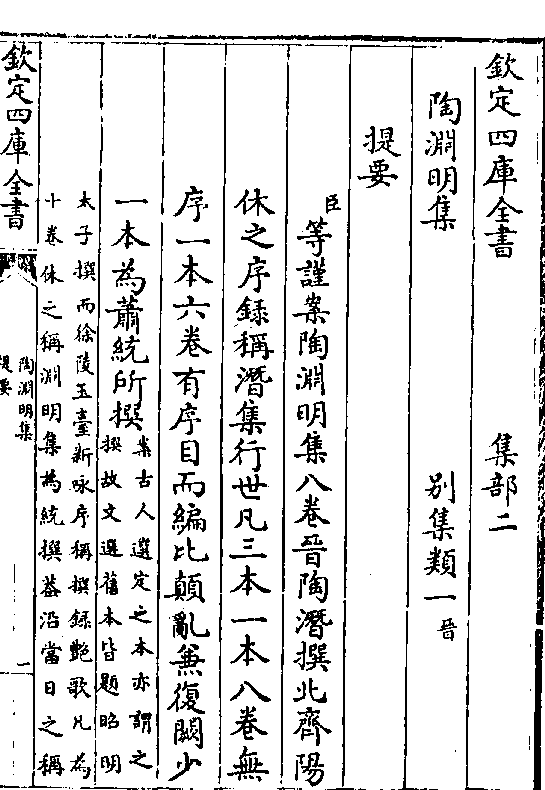 欽定四庫全書　集部二
陶淵明集　別集類一晉
提要
臣等謹案陶淵明集八卷晉陶潛撰北齊陽
休之序錄稱潛集行世凡三本一本八卷無
序一本六卷有序目而編比顛亂兼復闕少
一本為蕭統所撰案古人選定之本亦謂之
撰故文選舊本皆題昭明
太子撰而徐陵玉臺新咏序稱撰錄艶歌凡為
十卷休之稱淵明集為統撰葢沿當日之稱
欽定四庫全書
陶淵明集
提要
一